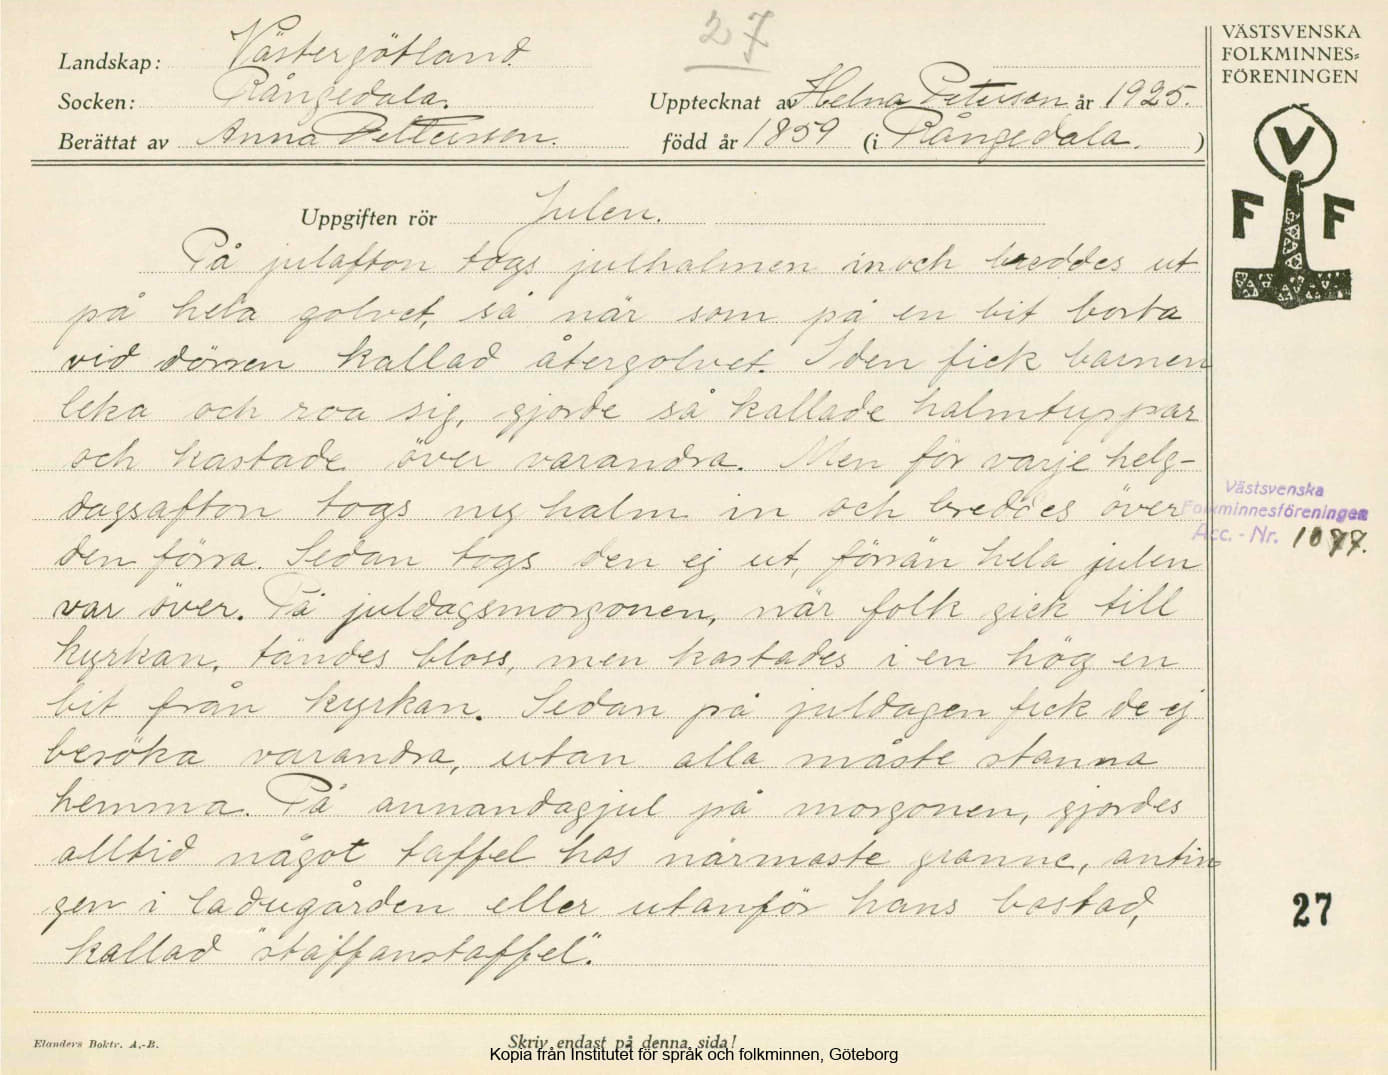 27
Landskap: Västergötland.
Socken: Rångedala.
Berättat av Anna Pettersson.
Upptecknat av Helna Peterson år 1925.
född år 1859 (i Rångedala. )
VÄSTSVENSKA
FOLKMINNES=
FÖRENINGEN
V
F F
Uppgiften rör Julen.
På julafton togs julhalmen in och breddes ut
på hela golvet, så när som på en bit borta
vid dörren kallad återgolvet. I den fick barnen
leka och roa sig, gjorde så kallade halmtuppar
och kastade över varandra. Men för varje helg-
dagsafton togs ny halm in och breddes över
den förra. Sedan togs den ej ut, förrän hela julen
var över. På juldagsmorgonen, när folk gick till
kyrkan, tändes bloss, men kastades i en hög en
bit från kyrkan. Sedan på juldagen fick de ej
besöka varandra, utan alla måste stanna
hemma. På annandagjul på morgonen, gjordes
alltid något taffel hos närmaste granne, antin
gen i ladugården eller utanför hans bostad,
kallad "staffanstaffel".
Västsvenska
Folkminnesföreningen
Acc. - Nr. 1077.
27
Elanders Boktr. A.-B.
Skriv endast på denna sida!
Kopia från Institutet för språk och folkminnen, Göteborg